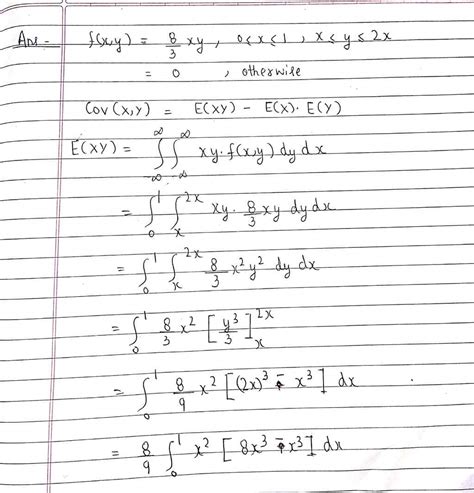 Ans - f(x,y) = 8/3 xy , 0<x<1 , x≤y≤2x
= 0 , otherwise
Cov (x,y) = E(XY) - E(X). E(Y)
E(XY) = ∫_{-∞}^{∞} ∫_{-∞}^{∞} xy. f(x,y) dy dx
= ∫_0^1 ∫_x^{2x} xy. 8/3 xy dy dx
= ∫_0^1 ∫_x^{2x} 8/3 x² y² dy dx
= ∫_0^1 8/3 x² [y³/3]_x^{2x}
= ∫_0^1 8/9 x² [(2x)³ - x³] dx
= 8/9 ∫_0^1 x² [8x³ - x³] dx